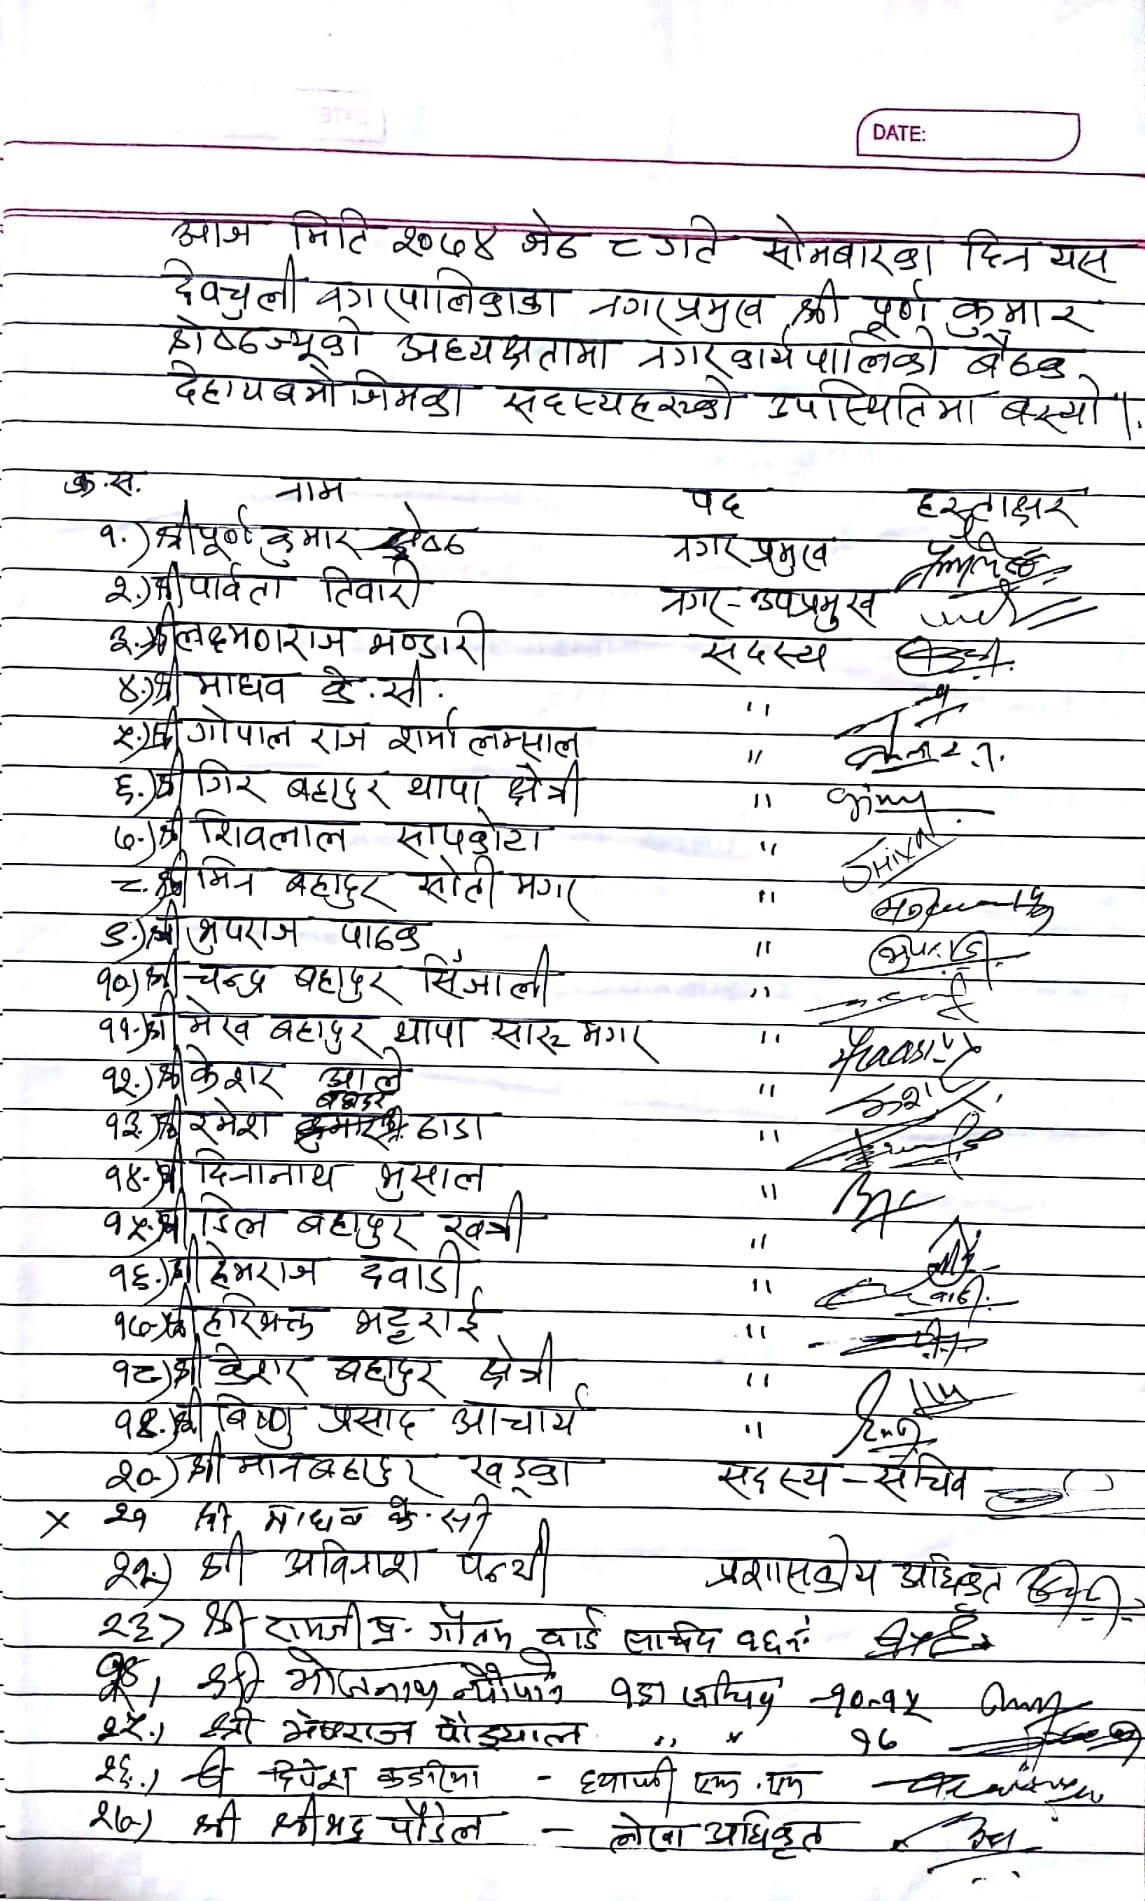 DATE:
आज मिति २०७४ जेठ ८ गते सोमबारका दिन यस
देवचुली नगरपालिकाका नगरप्रमुख श्री पूर्ण कुमार
श्रेष्ठज्यूको अध्यक्षतामा नगर कार्यपालिकाको बैठक
देहाय बमोजिमका सदस्यहरूको उपस्थितिमा बस्यो ।
क्र.स. नाम पद हस्ताक्षर
१.) श्री पूर्ण कुमार श्रेष्ठ नगर प्रमुख
२.) श्री पार्वता तिवारी नगर-उपप्रमुख
३.) श्री लक्ष्मणराज भण्डारी सदस्य
४.) श्री माधव के.सी. "
५.) श्री गोपाल राज शर्मा लम्साल "
६.) श्री गिर बहादुर थापा क्षेत्री "
७.) श्री शिवलाल सापकोटा " Shiva
८. श्री मिन बहादुर सोती मगर "
९.) श्री भुपराज पाठक "
१०) श्री चन्द्र बहादुर सिंजाली "
११. श्री मेख बहादुर थापा सारू मगर "
१२.) श्री केशर आले "
१३.) श्री रमेश बहादुर ढाडा "
१४. श्री दिनानाथ भुसाल "
१५. श्री डिल बहादुर खत्री "
१६.) श्री हेमराज दवाडी "
१७. श्री हरिभक्त भट्टराई "
१८) श्री केशर बहादुर क्षेत्री "
१९. श्री बिष्णु प्रसाद आचार्य "
२०) श्री मानबहादुर खड्का सदस्य - सचिव
× २१ श्री माधव के.सी
२२.) श्री अविनाश पन्थी प्रशासकीय अधिकृत
२३> श्री रामजी प्र. गौतम वार्ड सचिव १६ नं
२४, श्री भोजनाथ न्यौपाने वडा सचिव -१०-१५
२५., श्री मेघराज पौड्याल " " १७
२६., श्री दिपेश कडरिया - एफ.एम
२७) श्री श्रीभद्र पौडेल - लेखा अधिकृत